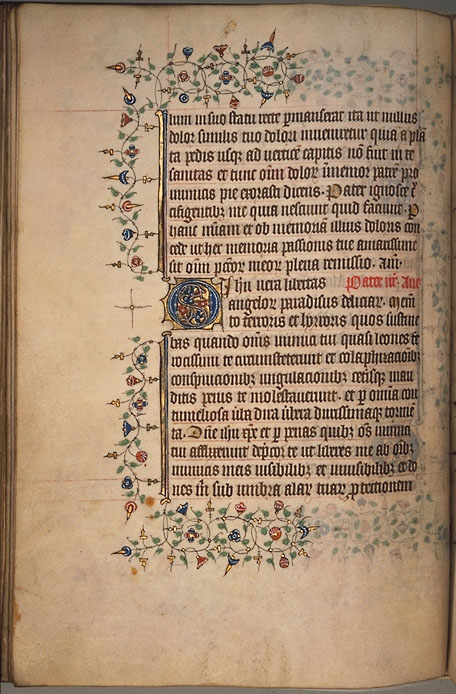 tuum in suo statu recte pmanserat ita ut nullus
dolor similis tuo dolori inueniretur quia a plā
ta pedis usq; ad verticē capitis nō fuit in te
sanitas et tunc oīm dolor īmemor patrē pro
inimicis pie exorasti dicens. Pater ignosce
cifigentibȝ me quia nesciunt quid faciunt. P
hanc mīam et ob memoriā illius doloris con
cede ut hec memoria passionis tue amarissime
sit oīm pctor meor plena remissio. Am̄.
O Ihu uera libertas Pater nr̄. Aue
angelor paradisus deliciar. memen
to terroris et horroris quos sustine
bas quando om̄s inimici tui quasi leones fe
rocissimi te circumsteterunt et colaphizacionibȝ
conspucionibȝ ungulacionibȝ ceterisq; inau
ditis penis te molestauerunt. et p omnia con
tumeliosa ūba dira ūbera durissimaq; tormē
ta. Dn̄e ihu xp̄e et p penas quibȝ om̄s inimici
tui afflixerunt dep̄cor te ut liberes me ab oībȝ
inimicis meis uisibilibȝ et inuisibilibȝ et do
nes m̄ sub umbra alar tuar, ptectionem